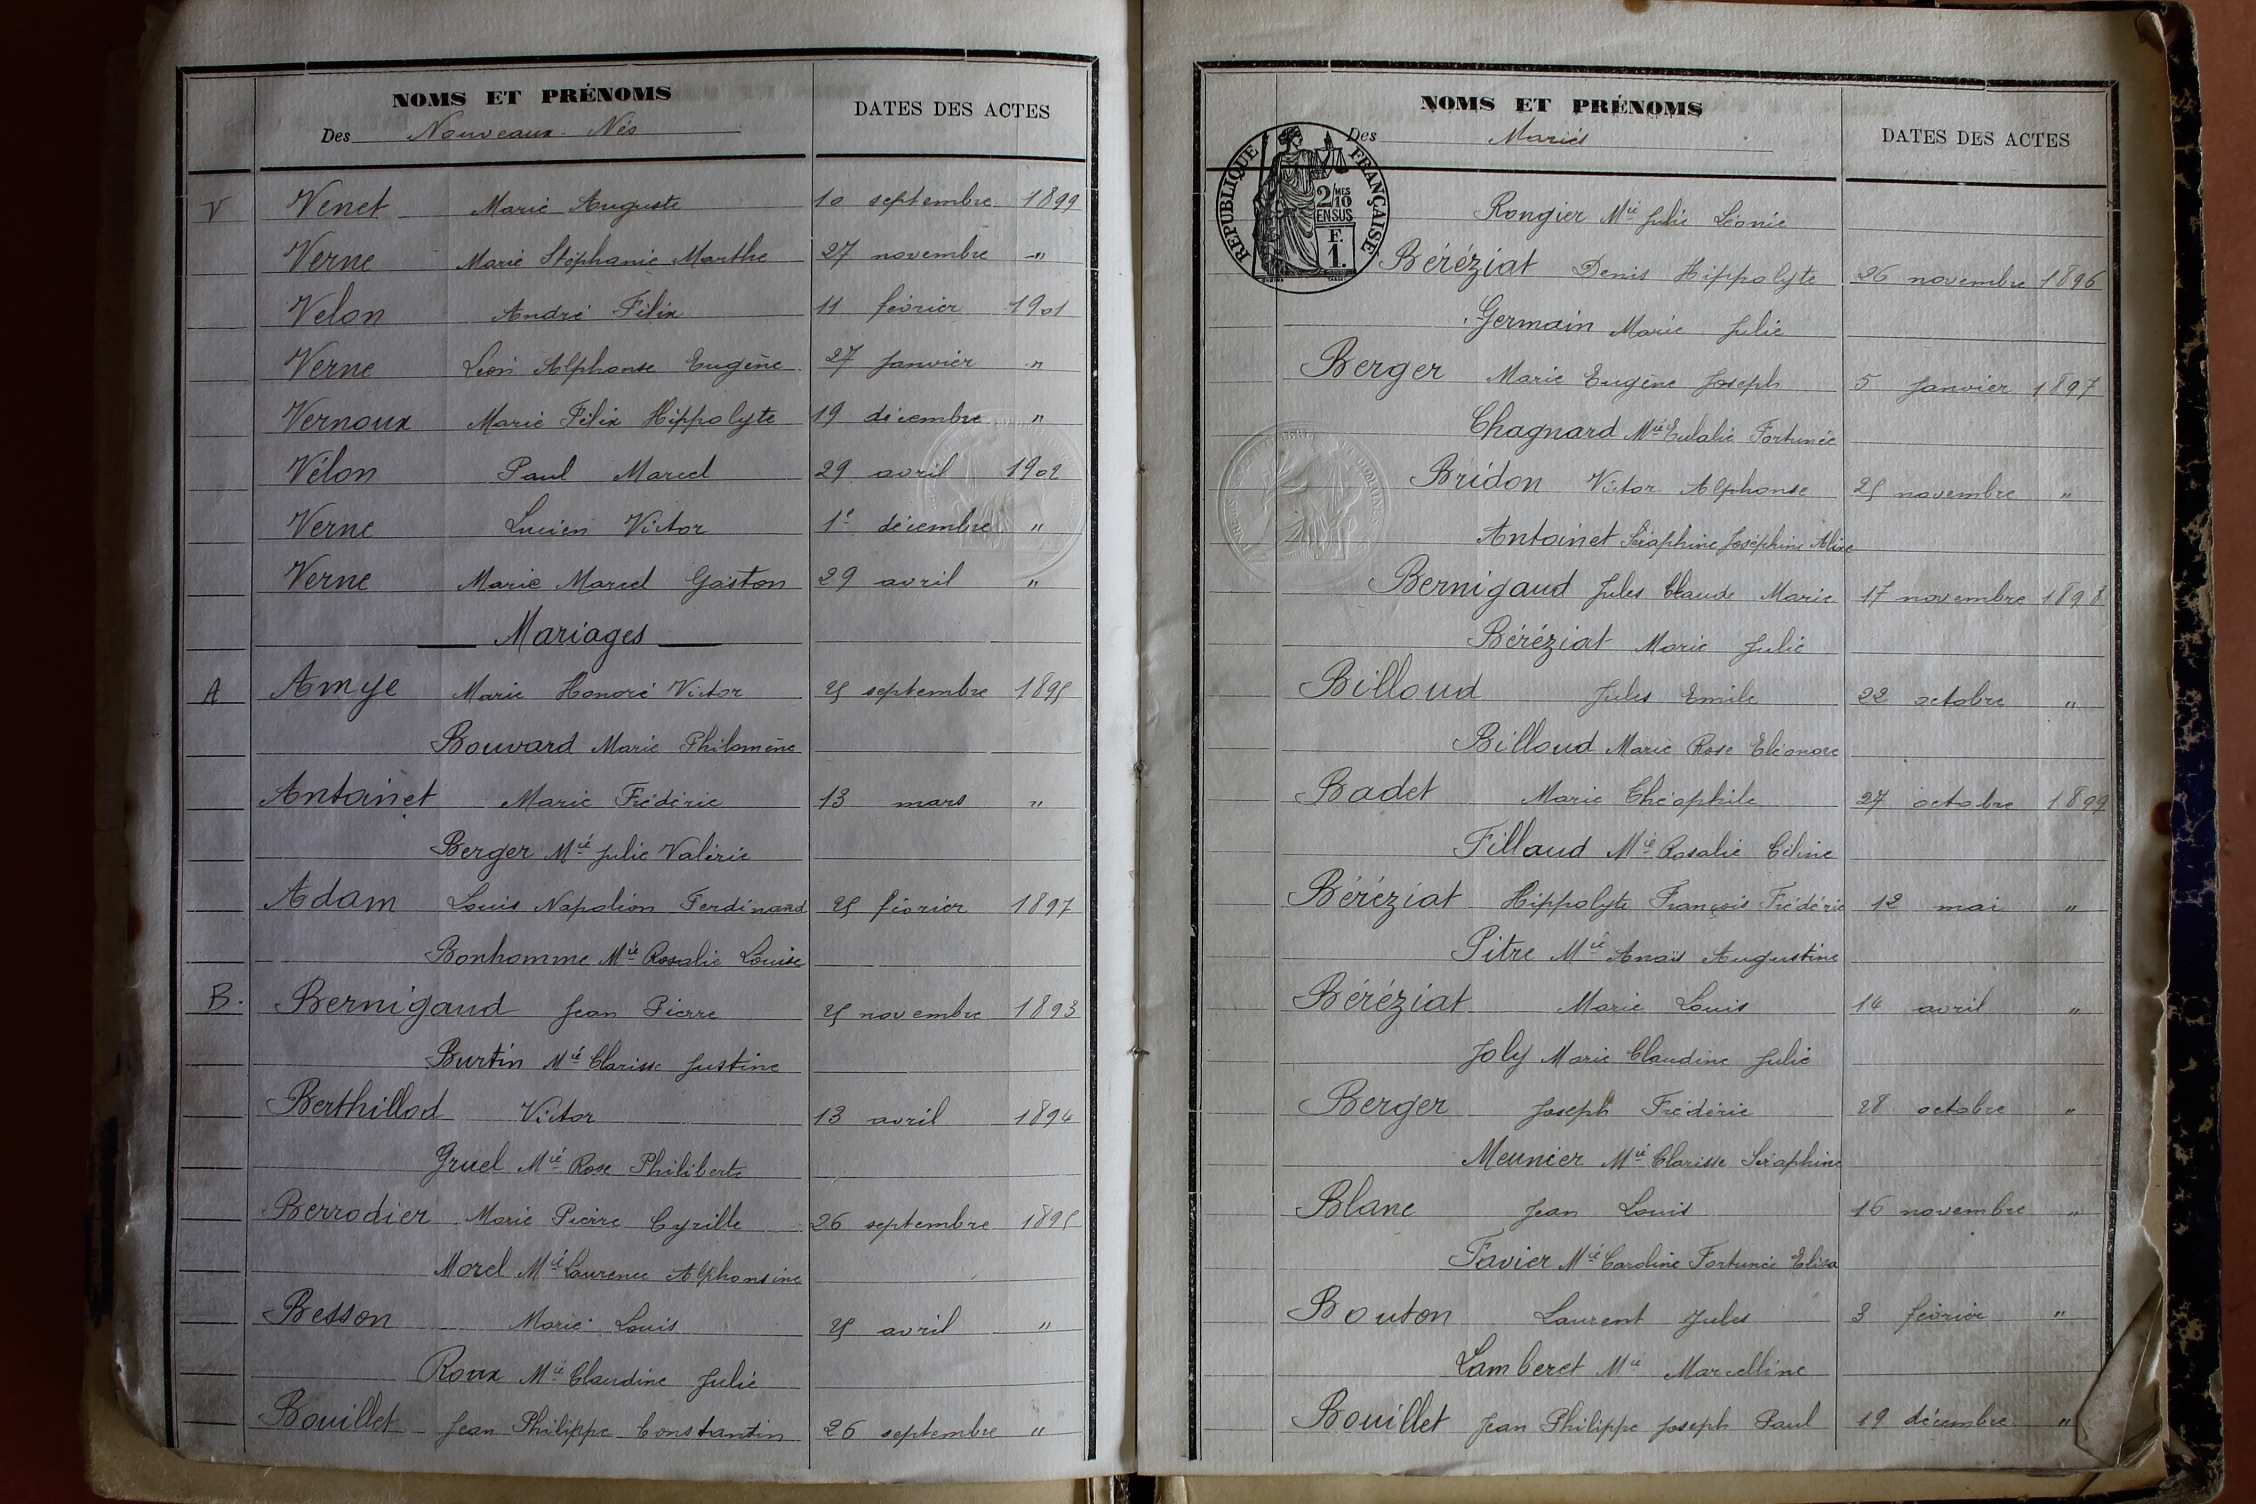 NOMS ET PRÉNOMS
Des Nouveaux-Nés
DATES DES ACTES
V Venet Marie Auguste 10 septembre 1899
Verne Marie Stéphanie Marthe 27 novembre "
Velon André Félix 11 février 1901
Verne Léon Alphonse Eugène 27 Janvier "
Vernoux Marie Félix Hippolyte 19 décembre "
Vélon Paul Marcel 29 avril 1902
Verne Lucien Victor 1er décembre "
Verne Marie Marcel Gaston 29 avril "
Mariages
A Amye Marie Honoré Victor 25 septembre 1895
Bouvard Marie Philomène
Antoinet Marie Frédéric 13 mars "
Berger Mie Julie Valérie
Adam Louis Napoléon Ferdinand 25 février 1897
Bonhomme Mie Rosalie Louise
B. Bernigaud Jean Pierre 25 novembre 1893
Burtin Mie Clarisse Justine
Berthillod Victor 13 avril 1894
Gruel Mie Rose Philiberte
Berrodier Marie Pierre Cyrille 26 septembre 1895
Morel Mie Laurence Alphonsine
Besson Marie Louis 25 avril "
Roux Mie Claudine Julie
Bouillet Jean Philippe Constantin 26 septembre "
NOMS ET PRÉNOMS
Des Mariés
DATES DES ACTES
RÉPUBLIQUE FRANÇAISE
2/10 MES
EN SUS
F.
1.
Rongier Mie Julie Léonie
Béréziat Denis Hippolyte 26 novembre 1896
Germain Marie Julie
Berger Marie Eugène Joseph 5 Janvier 1897
Chagnard Mie Eulalie Fortunée
Bridon Victor Alphonse 25 novembre "
Antoinet Séraphine Joséphine Alix
Bernigaud Jules Claude Marie 17 novembre 1898
Béréziat Marie Julie
Billoud Jules Emile 22 octobre "
Billoud Marie Rose Eléonore
Badet Marie Théophile 27 octobre 1899
Fillaud Mie Rosalie Céline
Béréziat Hippolyte François Frédéric 12 mai "
Pitre Mie Anaïs Augustine
Béréziat Marie Louis 14 avril "
Joly Marie Claudine Julie
Berger Joseph Frédéric 28 octobre "
Meunier Mie Clarisse Séraphine
Blanc Jean Louis 16 novembre "
Favier Mie Caroline Fortunée Elisa
Bouton Laurent Jules 3 février "
Lamberet Mie Marcelline
Bouillet Jean Philippe Joseph Paul 19 décembre "